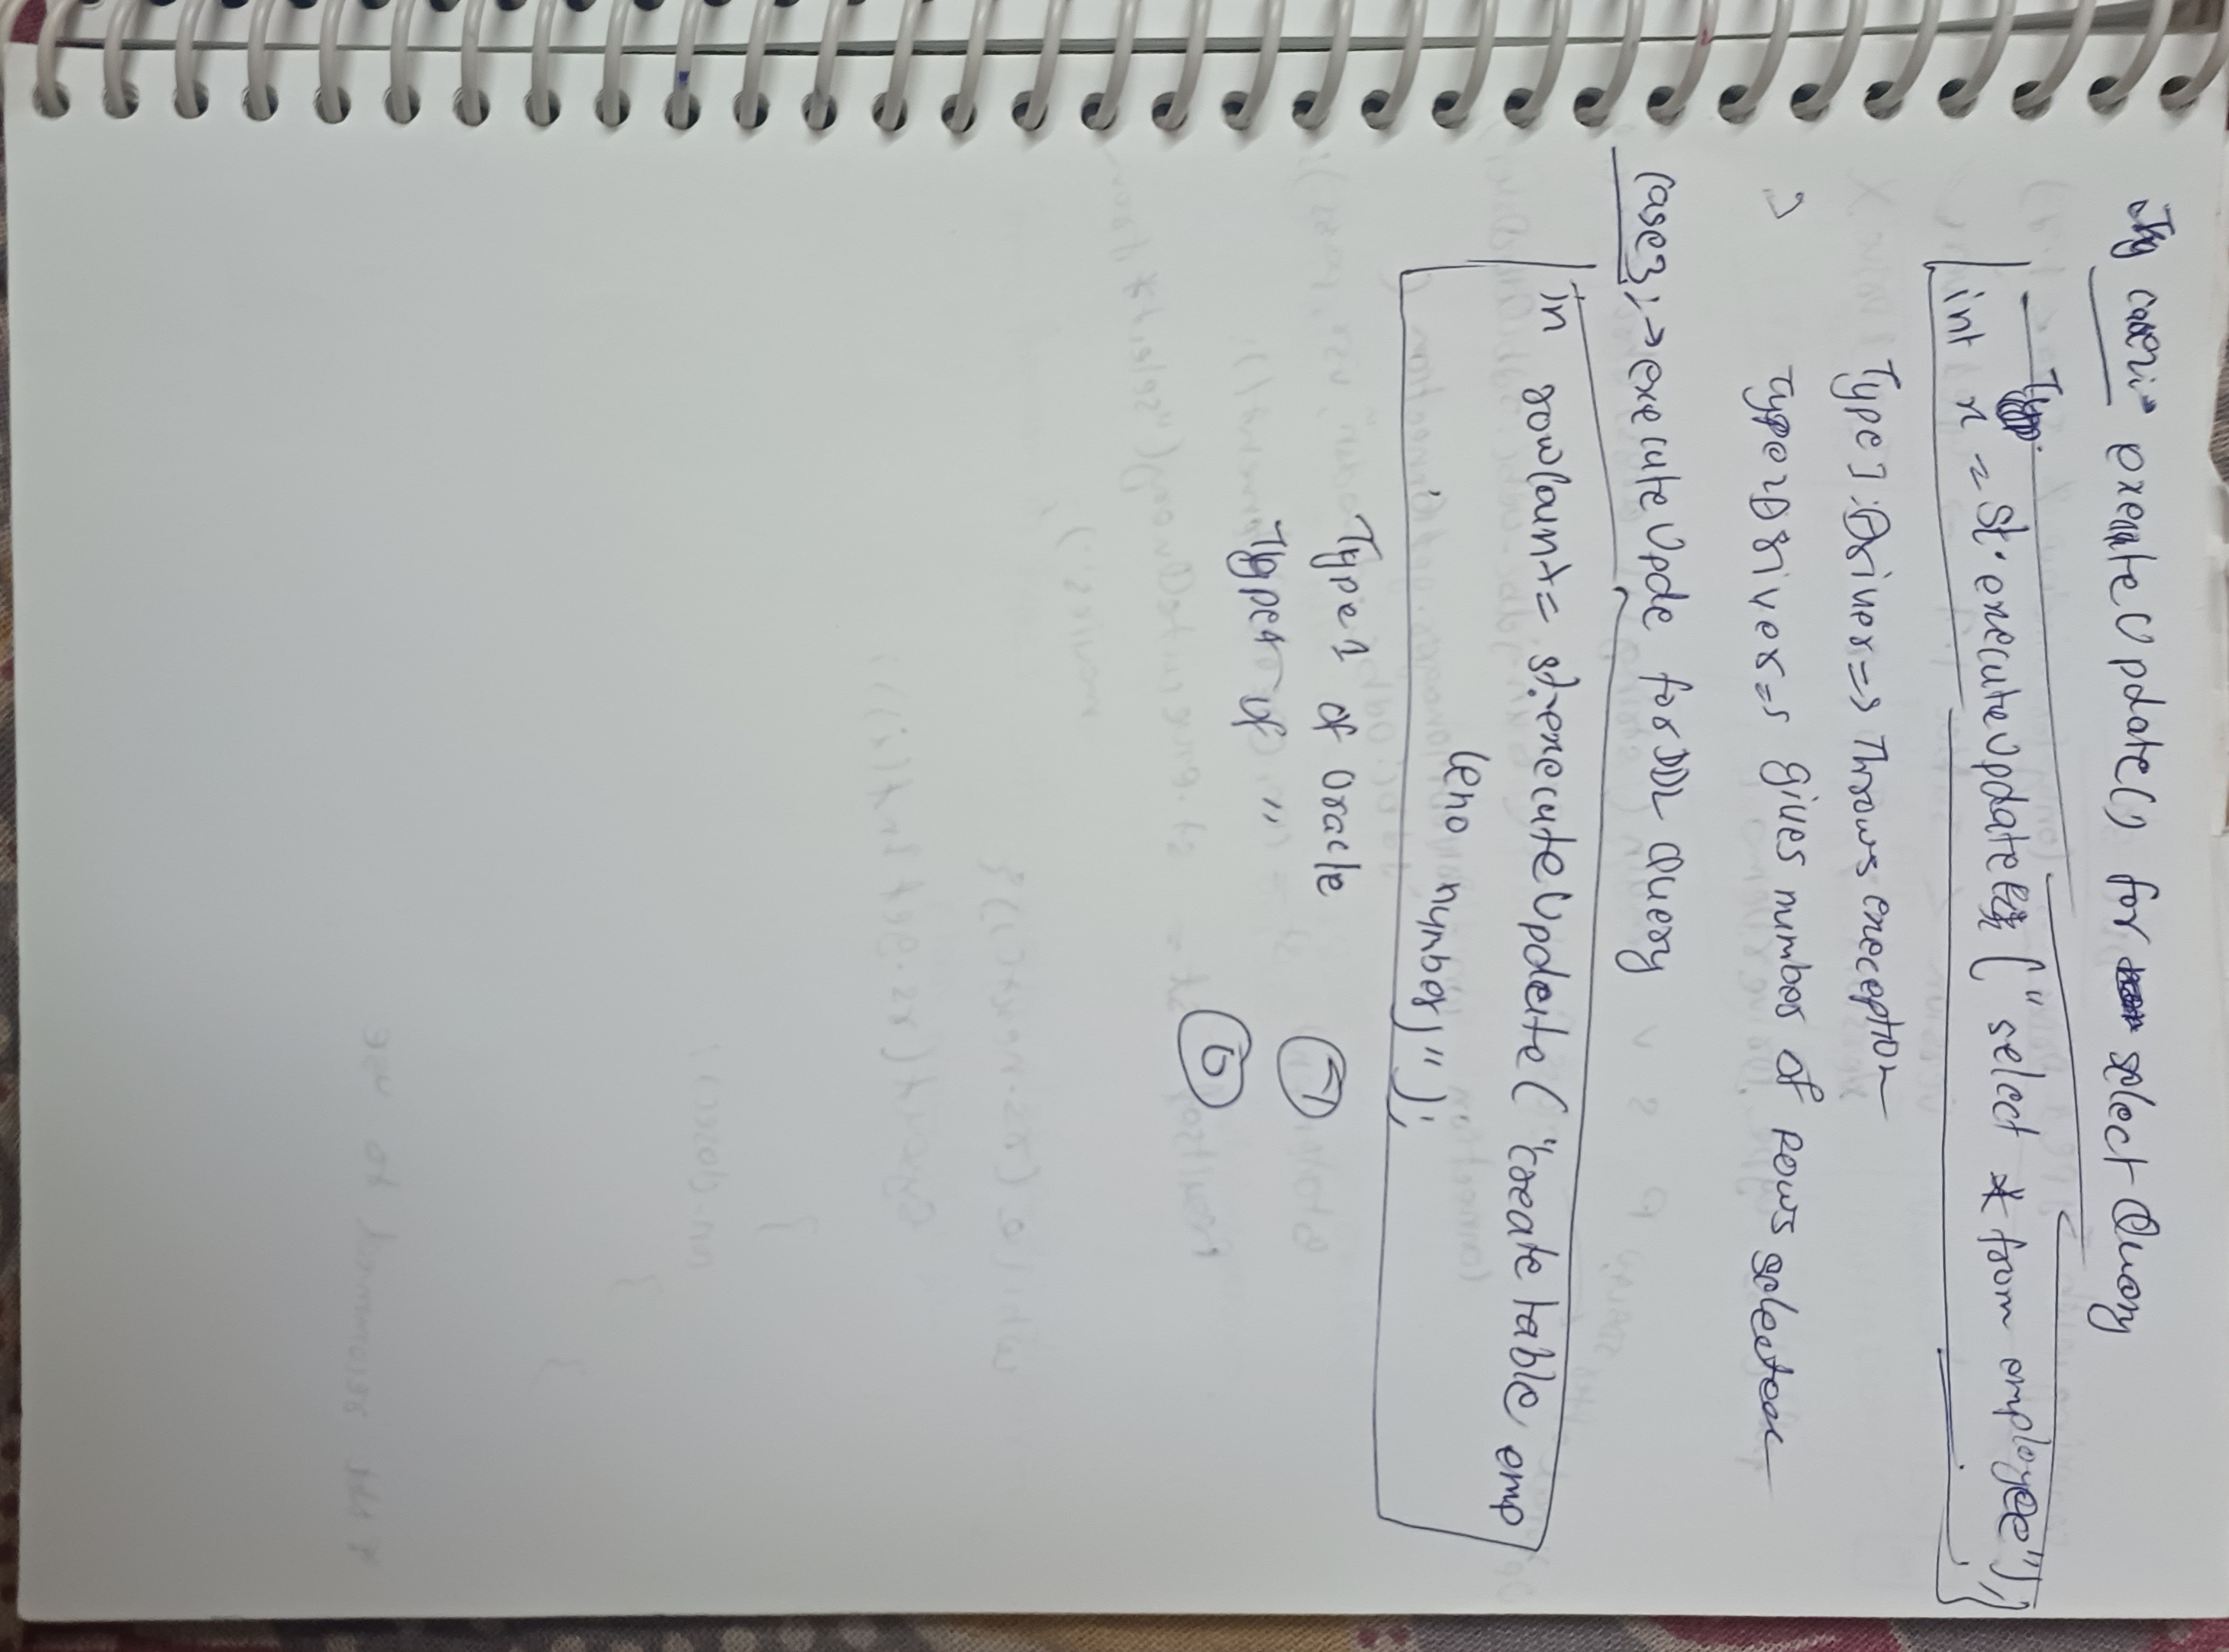 case:→ executeUpdate() for select Query
int n = St.executeUpdate("select * from employee");
Type1:Driver=> Throws exception
Type2Driver=> gives number of rows selected
case3:→executeUpde for DDL Query
in rowCount= st.executeUpdate("create table emp
(eno number)");
Type1 of Oracle -1
Type4 of " 0